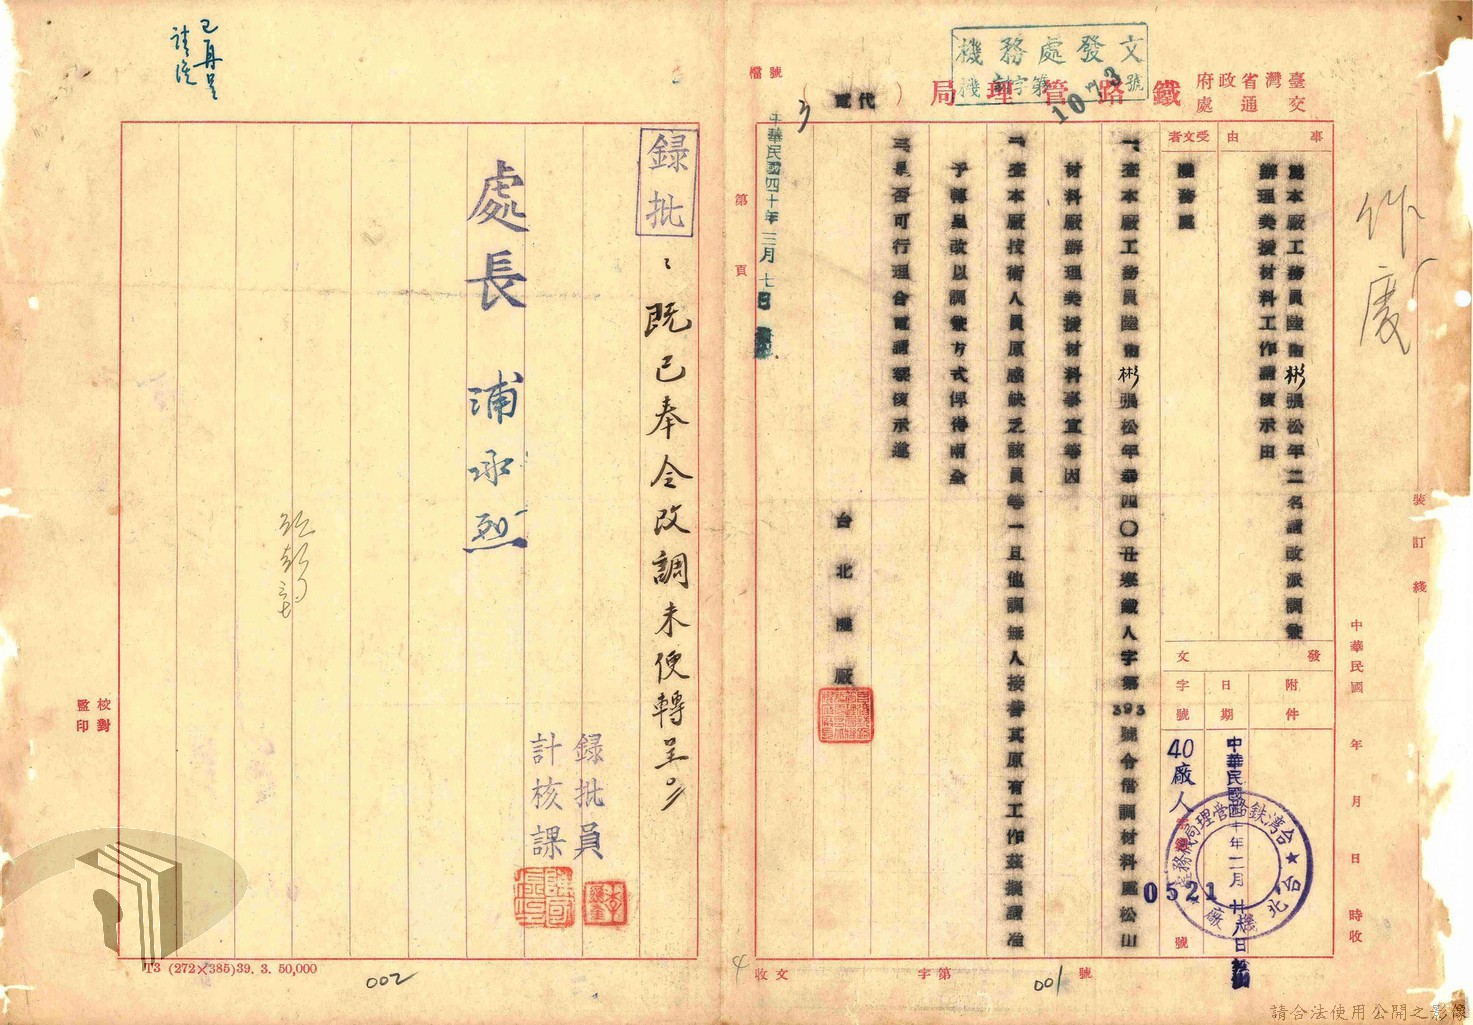 臺灣省政府
交通處
鐵路管理局
(代電)
檔號
機務處發文
機 字第 號
1073
事由
為本廠工務員陸南彬張松年二名請改派調駐
辦理美援材料工作請復示由
受文者
機務處
一、查本廠工務員陸南彬張松年奉四〇丑寒鐵人字第393號令借調材料處松山
材料廠辦理美援材料事宜等因
二、查本廠技術人員原感缺乏該員等一旦他調無人接替其原有工作茲擬請准
予轉呈改以調駐方式俾得兩全
三、是否可行理合電請察復示遵
台北機廠
發文
附件
日期
字號
中華民國四十年二月廿八日
40廠人
0521
號
台灣鉄路管理局機務處
台北機廠
中華民國 年 月 日 時收
裝訂綫
作廢
中華民國四十年三月七日
第 頁
收文 字第 號
001
4
錄批
既已奉令改調未便轉呈
處長 浦承烈
錄批員
計核課
校對
監印
已再呈
請復
T3 (272×385)39. 3. 50,000
002
請合法使用公開之影像